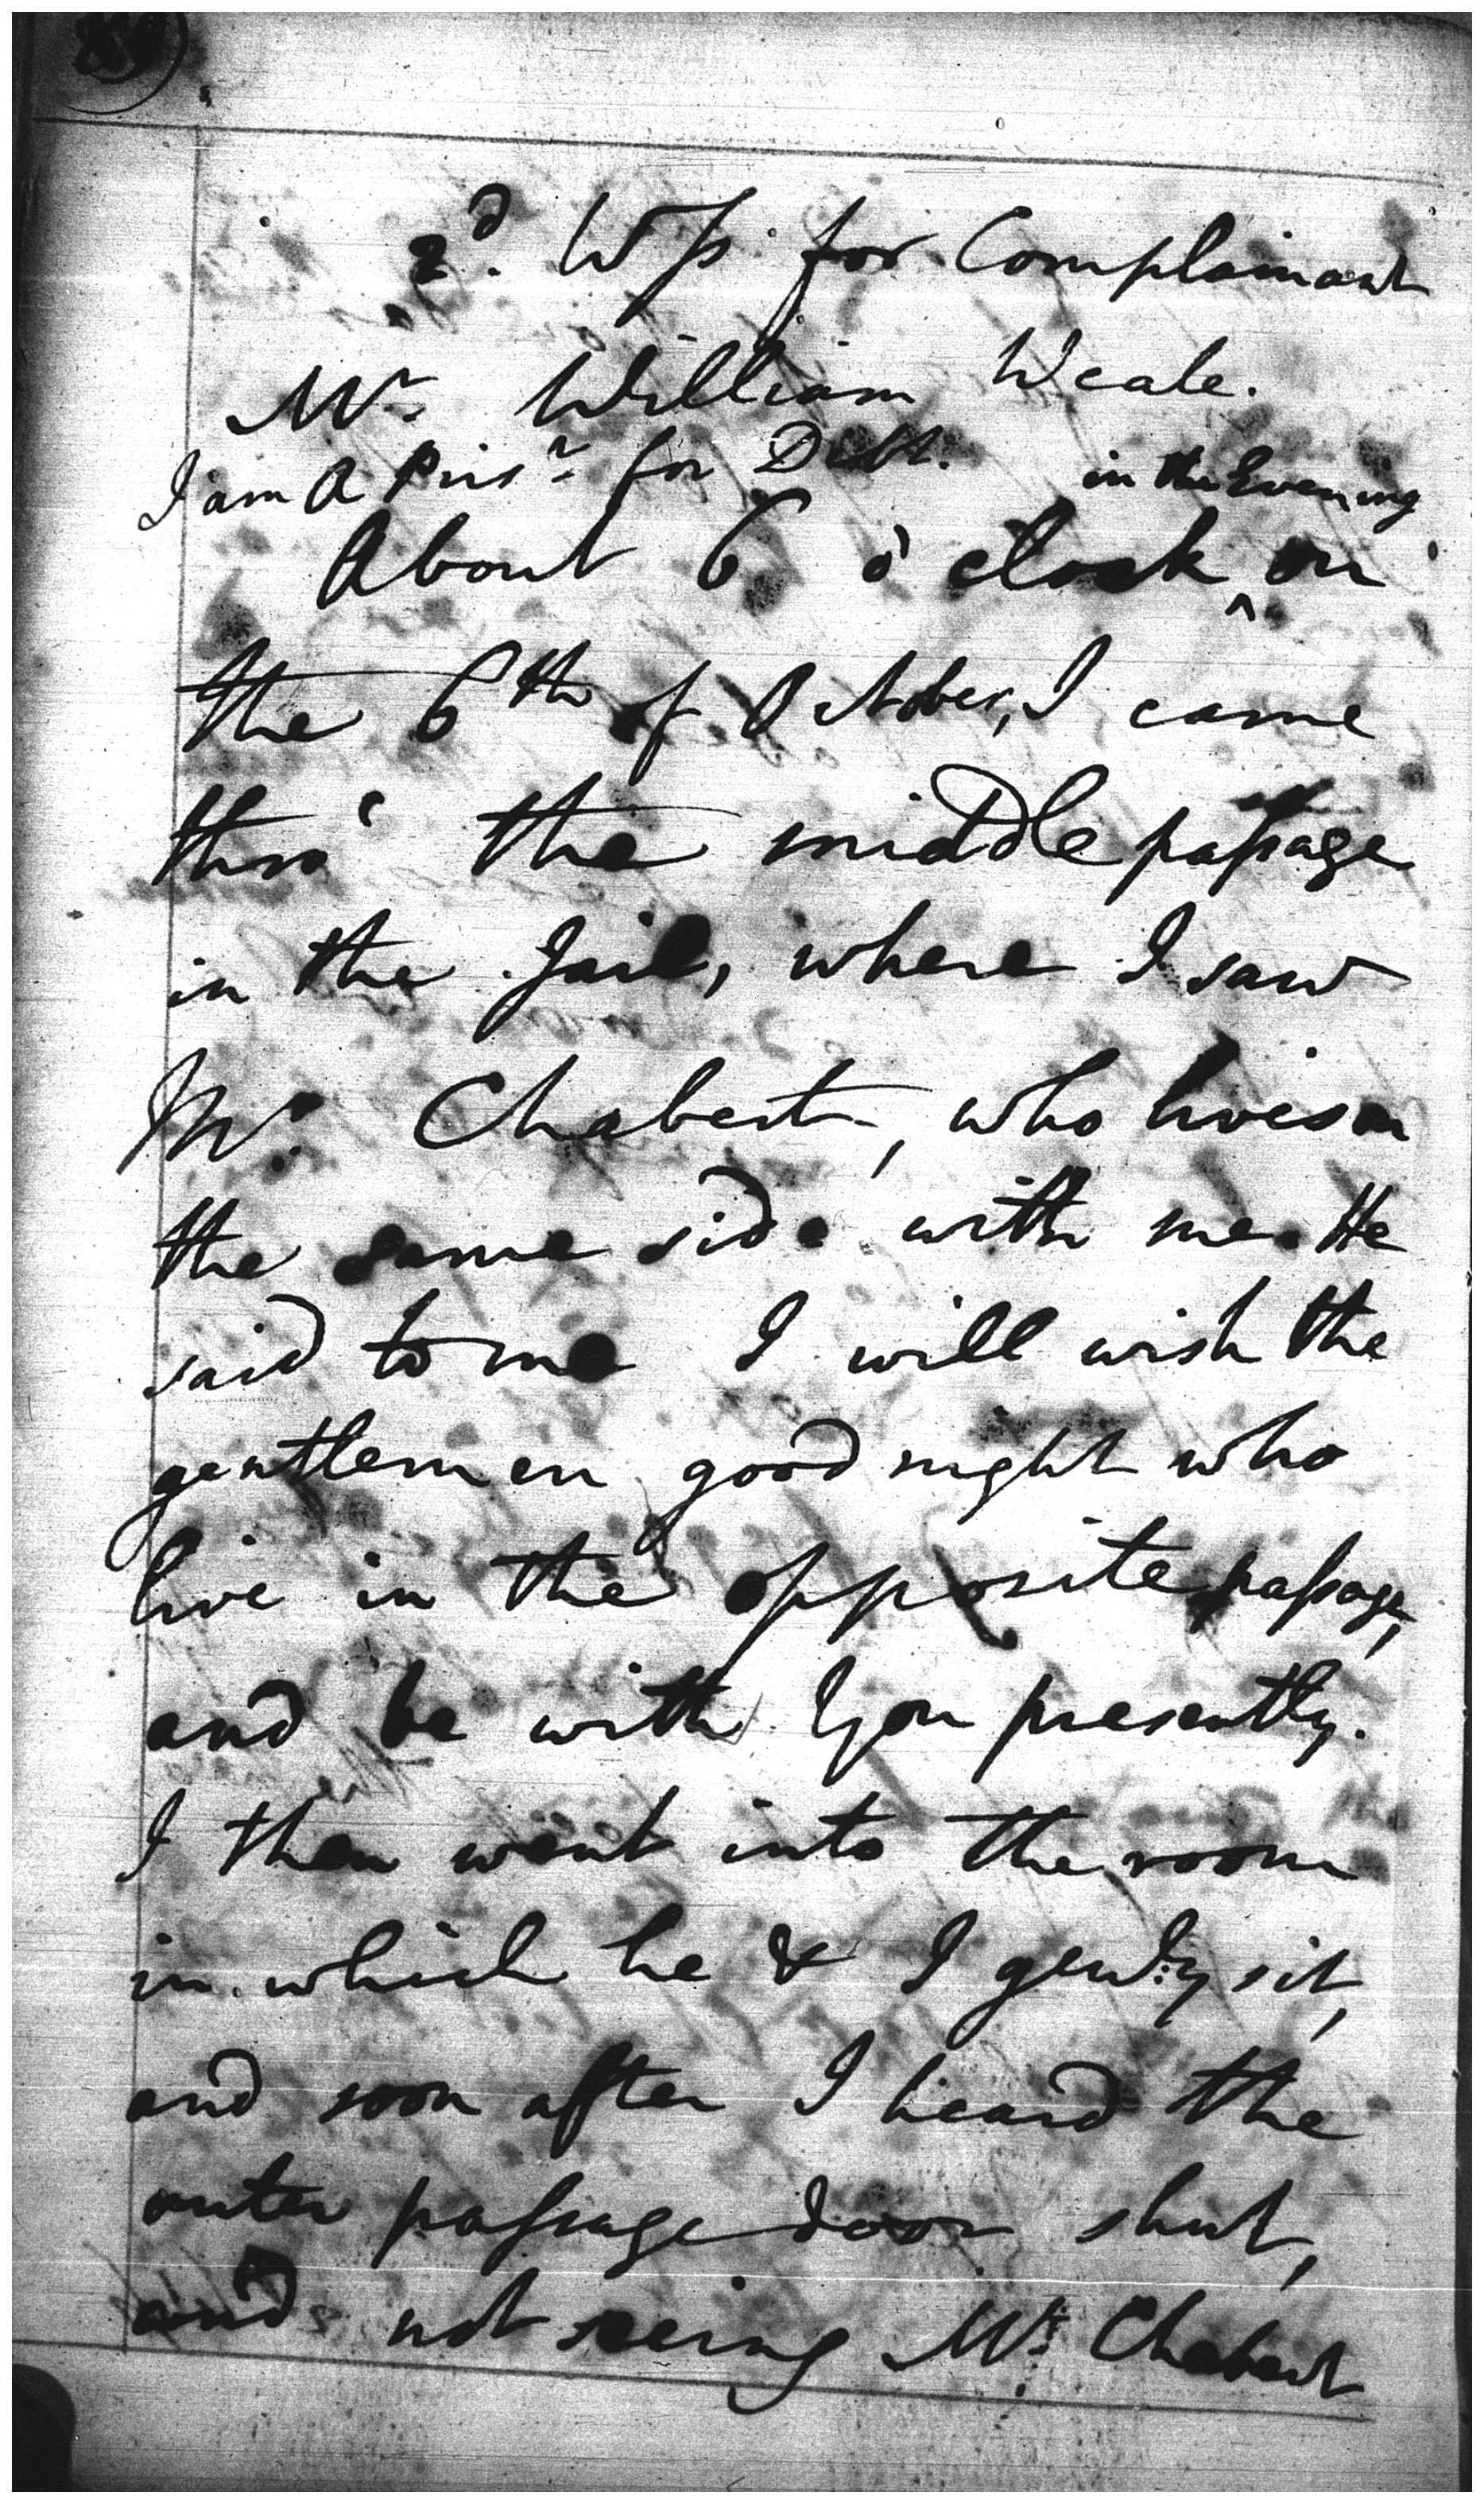 2d. Wss for Complainant
Mr William Weale.
I am a Prisr for Debt. in the Evening
About 6 o'clock ^ on
the 6th of October, I came
thro' the middle passage
in the Jail, where I saw
Mr. Chabert, who lives on
the same side with me. He
said to me I will wish the
gentlemen good night who
live in the opposite passage,
and be with You presently.
I then went into the room
in which he & I genlly sit,
and soon after I heard the
outer passage door shut,
and not seeing Mr. Chabert